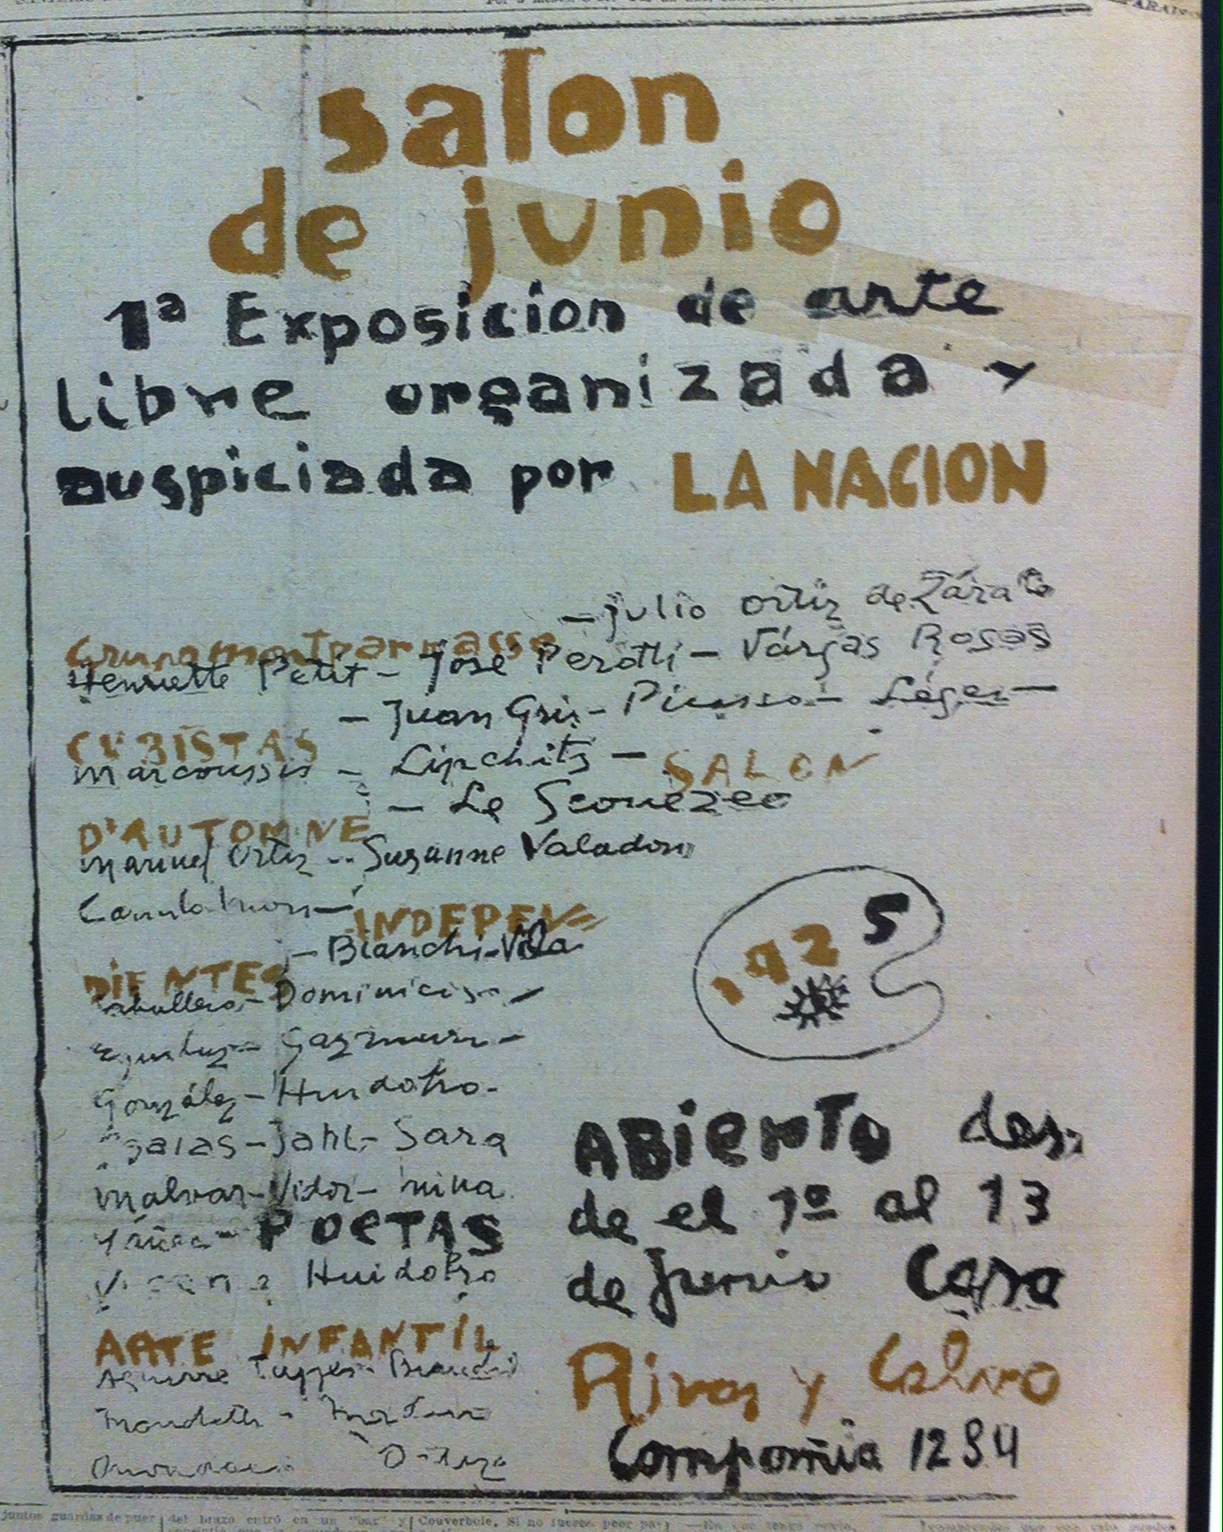 salon
de junio
1ª Exposicion de arte
libre organizada y
auspiciada por LA NACION
– julio ortiz de Zárate
Grupo montparnasse
Henriette Petit – José Perotti – Várgas Rosas
– Juan Gris – Picasso – Léger –
CUBISTAS
Marcoussis – Lipchitz – SALON
– Le Scouezec
D'AUTOMNE
Manuel Ortiz – Suzanne Valadon
Camilo Mori –
INDEPEN=
– Bianchi – Vila
DIENTES
Caballero – Dominicis –
– Gazmuri –
González – Huidobro –
– Jahl – Sara
Malvar – Vidor – nina
Yáñez – POETAS
Vicente Huidobro
ARTE INFANTIL
Aguirre Tupper – Bianchi
1925
ABierto des-
de el 1º al 13
de Junio Casa
Rivas y Calvo
Compañia 1294
juntos guardas de puer
del brazo entró en un "bar" y
Couverbole, Si no fueses peor pa